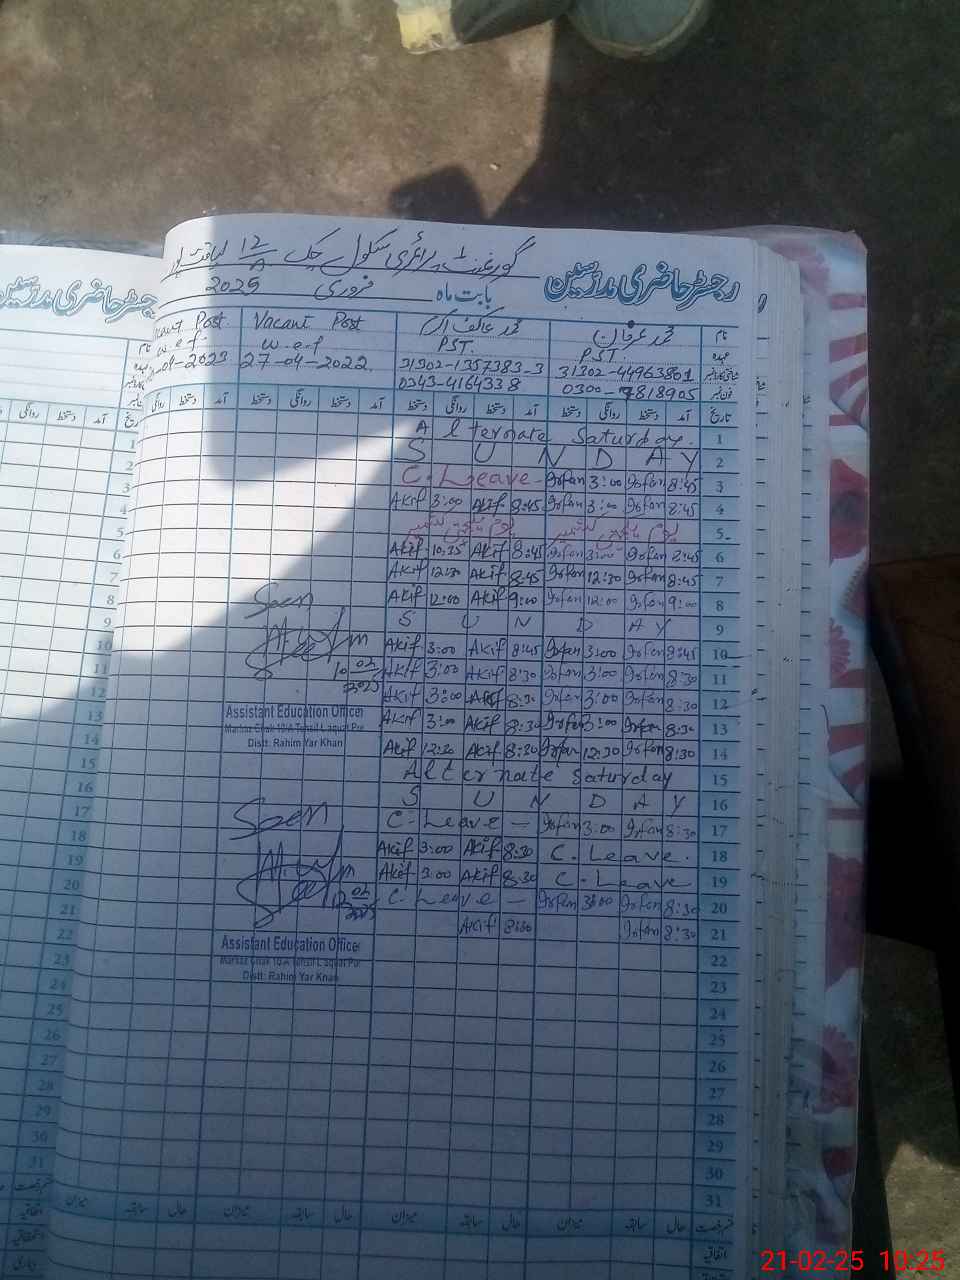 گورنمنٹ پرائمری سکول چک 12/A لیاقت پور
رجسٹر حاضری مدرسین
بابت ماہ فروری 2025
نام محمد عرفان محمد عاکف Vacant Post Vacant Post.
عہدہ PST. PST. w.e.f w.e.f
31302-44963801 31302-1357383-3 27-04-2022 04-2023
0300-7818905 0343-4164338
تاریخ آمد دستخط روانگی دستخط آمد دستخط روانگی دستخط آمد دستخط روانگی دستخط آمد دستخط روانگی
1 Alternate Saturday.
2 S U N D A Y
3 C. Leave - Irfan 3:00 Irfan 8:45
4 Akif 3:00 Akif 8:45 Irfan 3:00 Irfan 8:45
5 یوم یکجہتی کشمیر یوم یکجہتی کشمیر
6 Akif 10:35 Akif 8:45 Irfan 3:00 Irfan 8:45
7 Akif 12:30 Akif 8:45 Irfan 12:30 Irfan 8:45
8 Akif 12:00 Akif 9:00 Irfan 12:00 Irfan 9:00
Seen
9 S U N D A Y
10 Akif 3:00 Akif 8:45 Irfan 3:00 Irfan 8:45
11 Akif 3:00 Akif 8:30 Irfan 3:00 Irfan 8:30
10-02-2025
12 Akif 3:00 Akif 8:30 Irfan 3:00 Irfan 8:30
13 Akif 3:00 Akif 8:30 Irfan 3:00 Irfan 8:30
Assistant Education Officer
Markaz Chak 10/A Tehsil Liaquat Pur
Distt: Rahim Yar Khan
14 Akif 12:30 Akif 8:30 Irfan 12:30 Irfan 8:30
15 Alternate Saturday
16 S U N D A Y
17 C. Leave - Irfan 3:00 Irfan 8:30
Seen
18 Akif 3:00 Akif 8:30 C. Leave.
19 Akif 3:00 Akif 8:30 C. Leave
20 C. Leave - Irfan 3:00 Irfan 8:30
21 Akif 8:30 Irfan 8:30
Assistant Education Officer
Markaz Chak 10/A Tehsil Liaquat Pur
Distt: Rahim Yar Khan
22
23
24
25
26
27
28
29
30
31
قسم رخصت حال سابقہ میزان حال سابقہ میزان حال سابقہ میزان حال سابقہ میزان
اتفاقیہ
رجسٹر حاضری مدرسین
نام
عہدہ
تاریخ آمد دستخط روانگی
1
2
3
4
5
6
7
8
9
10
11
12
13
14
15
16
17
18
19
20
21
22
23
24
25
26
27
28
29
30
31
قسم رخصت
اتفاقیہ
استحقاقیہ
بیماری
21-02-25 10:25